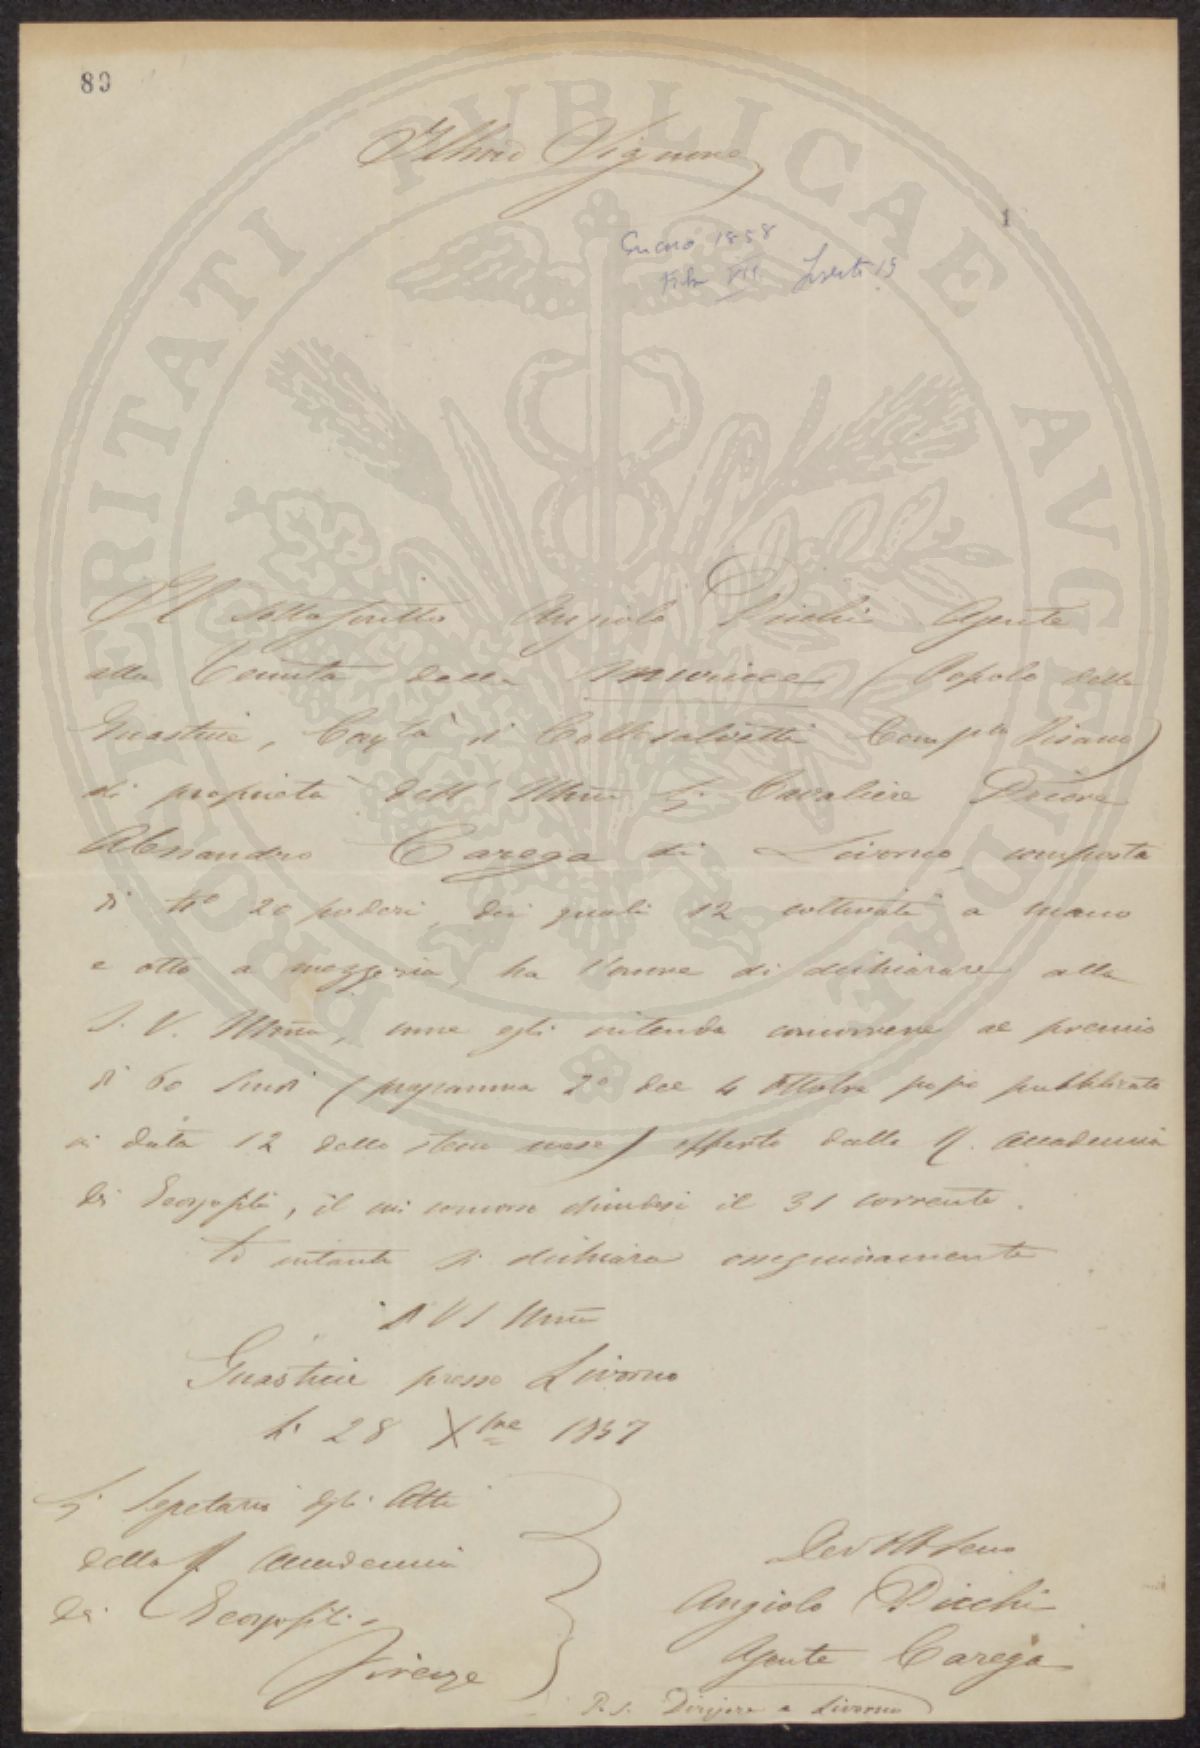 89
Illmo Signore
1
Genaro 1858
Filza VII. Inserto 15
Il sottoscritto Angiolo Picchi Agente
alla Tenuta della (Popolo delle
Guasticce, Com.tà di Collesalvetti Comp.to Pisano)
di proprietà dell' Illmo Sig. Cavaliere Priore
Alessandro Carega di Livorno, composta
di No 20 poderi, dei quali 12 coltivati a mano
e otto a mezzeria, ha l'onore di dichiarare alla
S. V. Illma, come egli intenda concorrere al premio
di 60 Scudi (programma 2o del 4 Ottobre pepo pubblicato
in data 12 dello stesso mese) offerto dalla R. Accademia
dei Georgofili, il cui concorso chiudesi il 31 corrente.
In intanto si dichiara ossequiosamente
D V S Illma
Guasticce presso Livorno
li 28 Xbre 1857
Sig. Segretario degli Atti
della R. Accademia
dei Georgofili
Firenze
Dev Obb Servo
Angiolo Picchi
Agente Carega
P. S. Dirigere a Livorno
PROSPERITATI PUBLICAE AVGENDAE